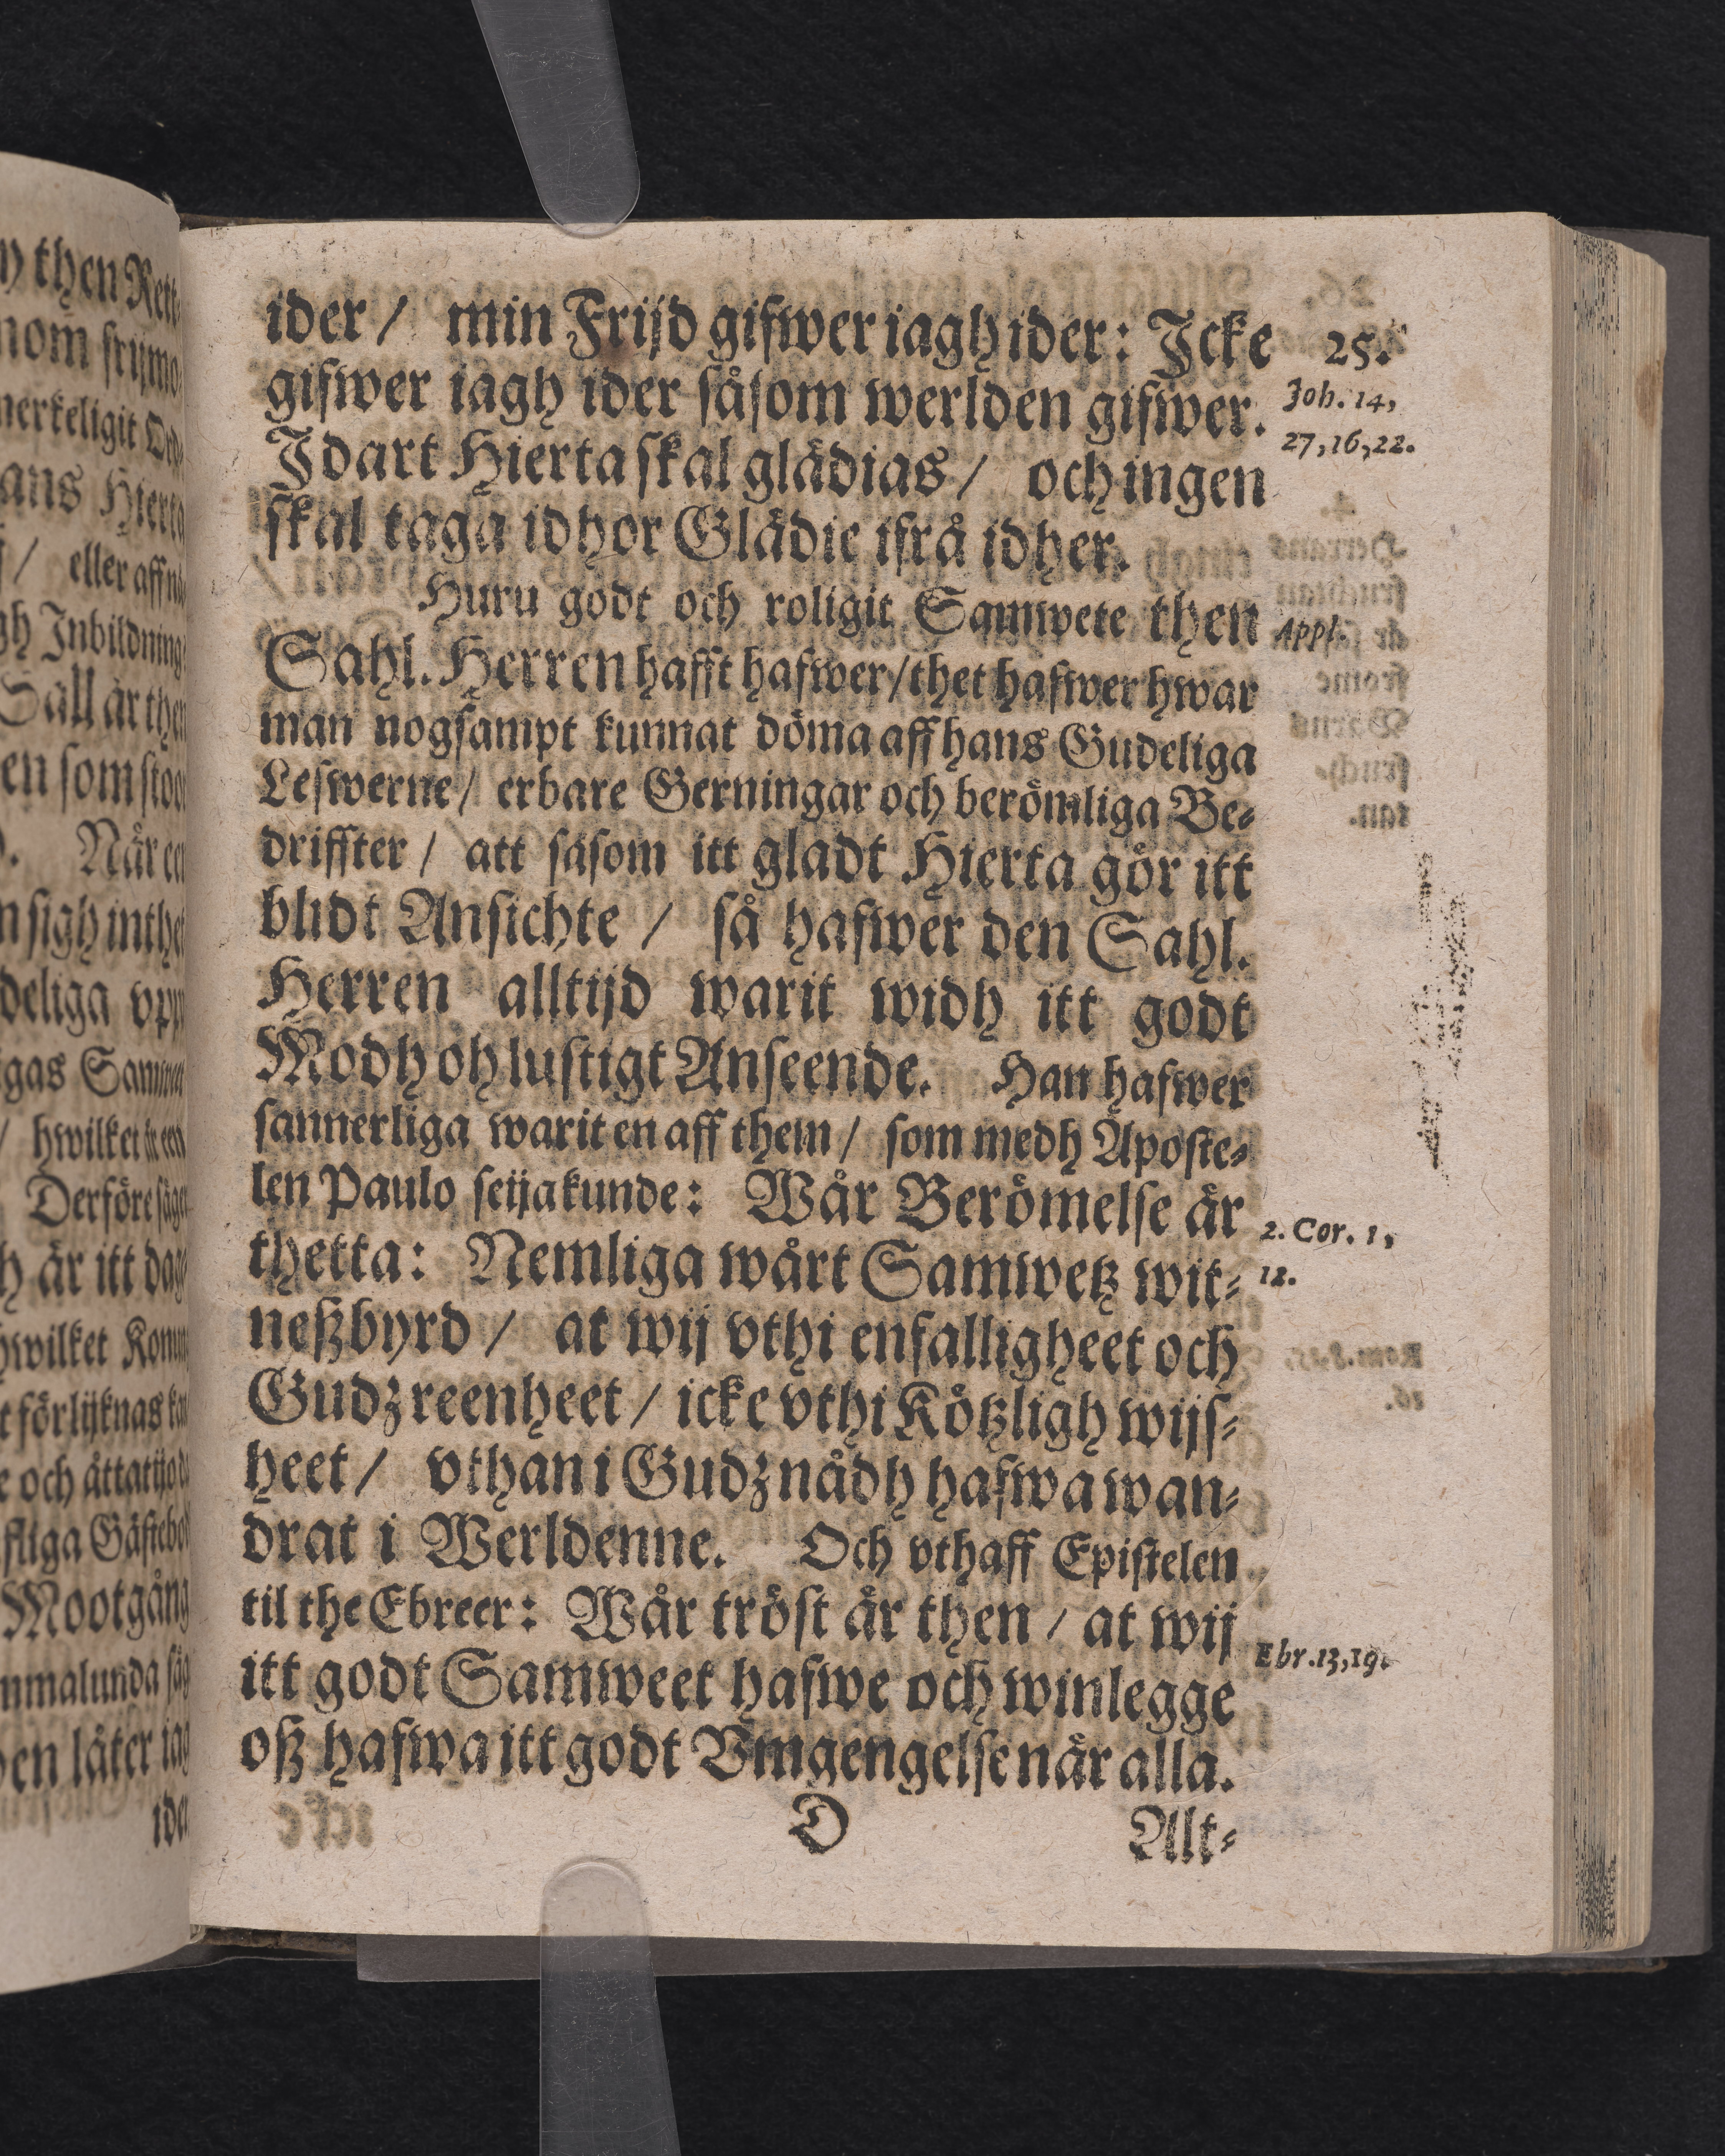 ider / min Frijd gifwer iagh ider: Icke
25.
gifwer iagh ider såsom werlden gifwer.
Joh. 14,
27,16,22.
Idart Hierta skal glädias / och ingen
skal taga idhor Glädie ifrå idher.
Huru godt och roligit Samwete then
Appl.
Sahl. Herren hafft hafwer / thet hafwer hwar
man nogsampt kunnat döma aff hans Gudeliga
Lefwerne / erbare Gerningar och berömliga Be-
driffter / att såsom itt gladt Hierta gör itt
blidt Ansichte / så hafwer den Sahl.
Herren alltijd warit widh itt godt
Modh oh lustigt Anseende. Han hafwer
sannerliga warit en aff them / som medh Aposte-
len Paulo seija kunde: Wår Berömelse är
2. Cor. 1,
12.
thetta: Nemliga wårt Samwetz wit-
neßbyrd / at wij vthi enfalligheet och
Gudz reenheet / icke vthi Kötzligh wijs-
heet / vthan i Gudz nådh hafwa wan-
drat i Werldenne. Och vthaff Epistelen
til the Ebreer: Wår tröst är then / at wij
Ebr. 13,19.
itt godt Samweet hafwe och winlegge
oß hafwa itt godt Vmgengelse när alla.
D
Alt-